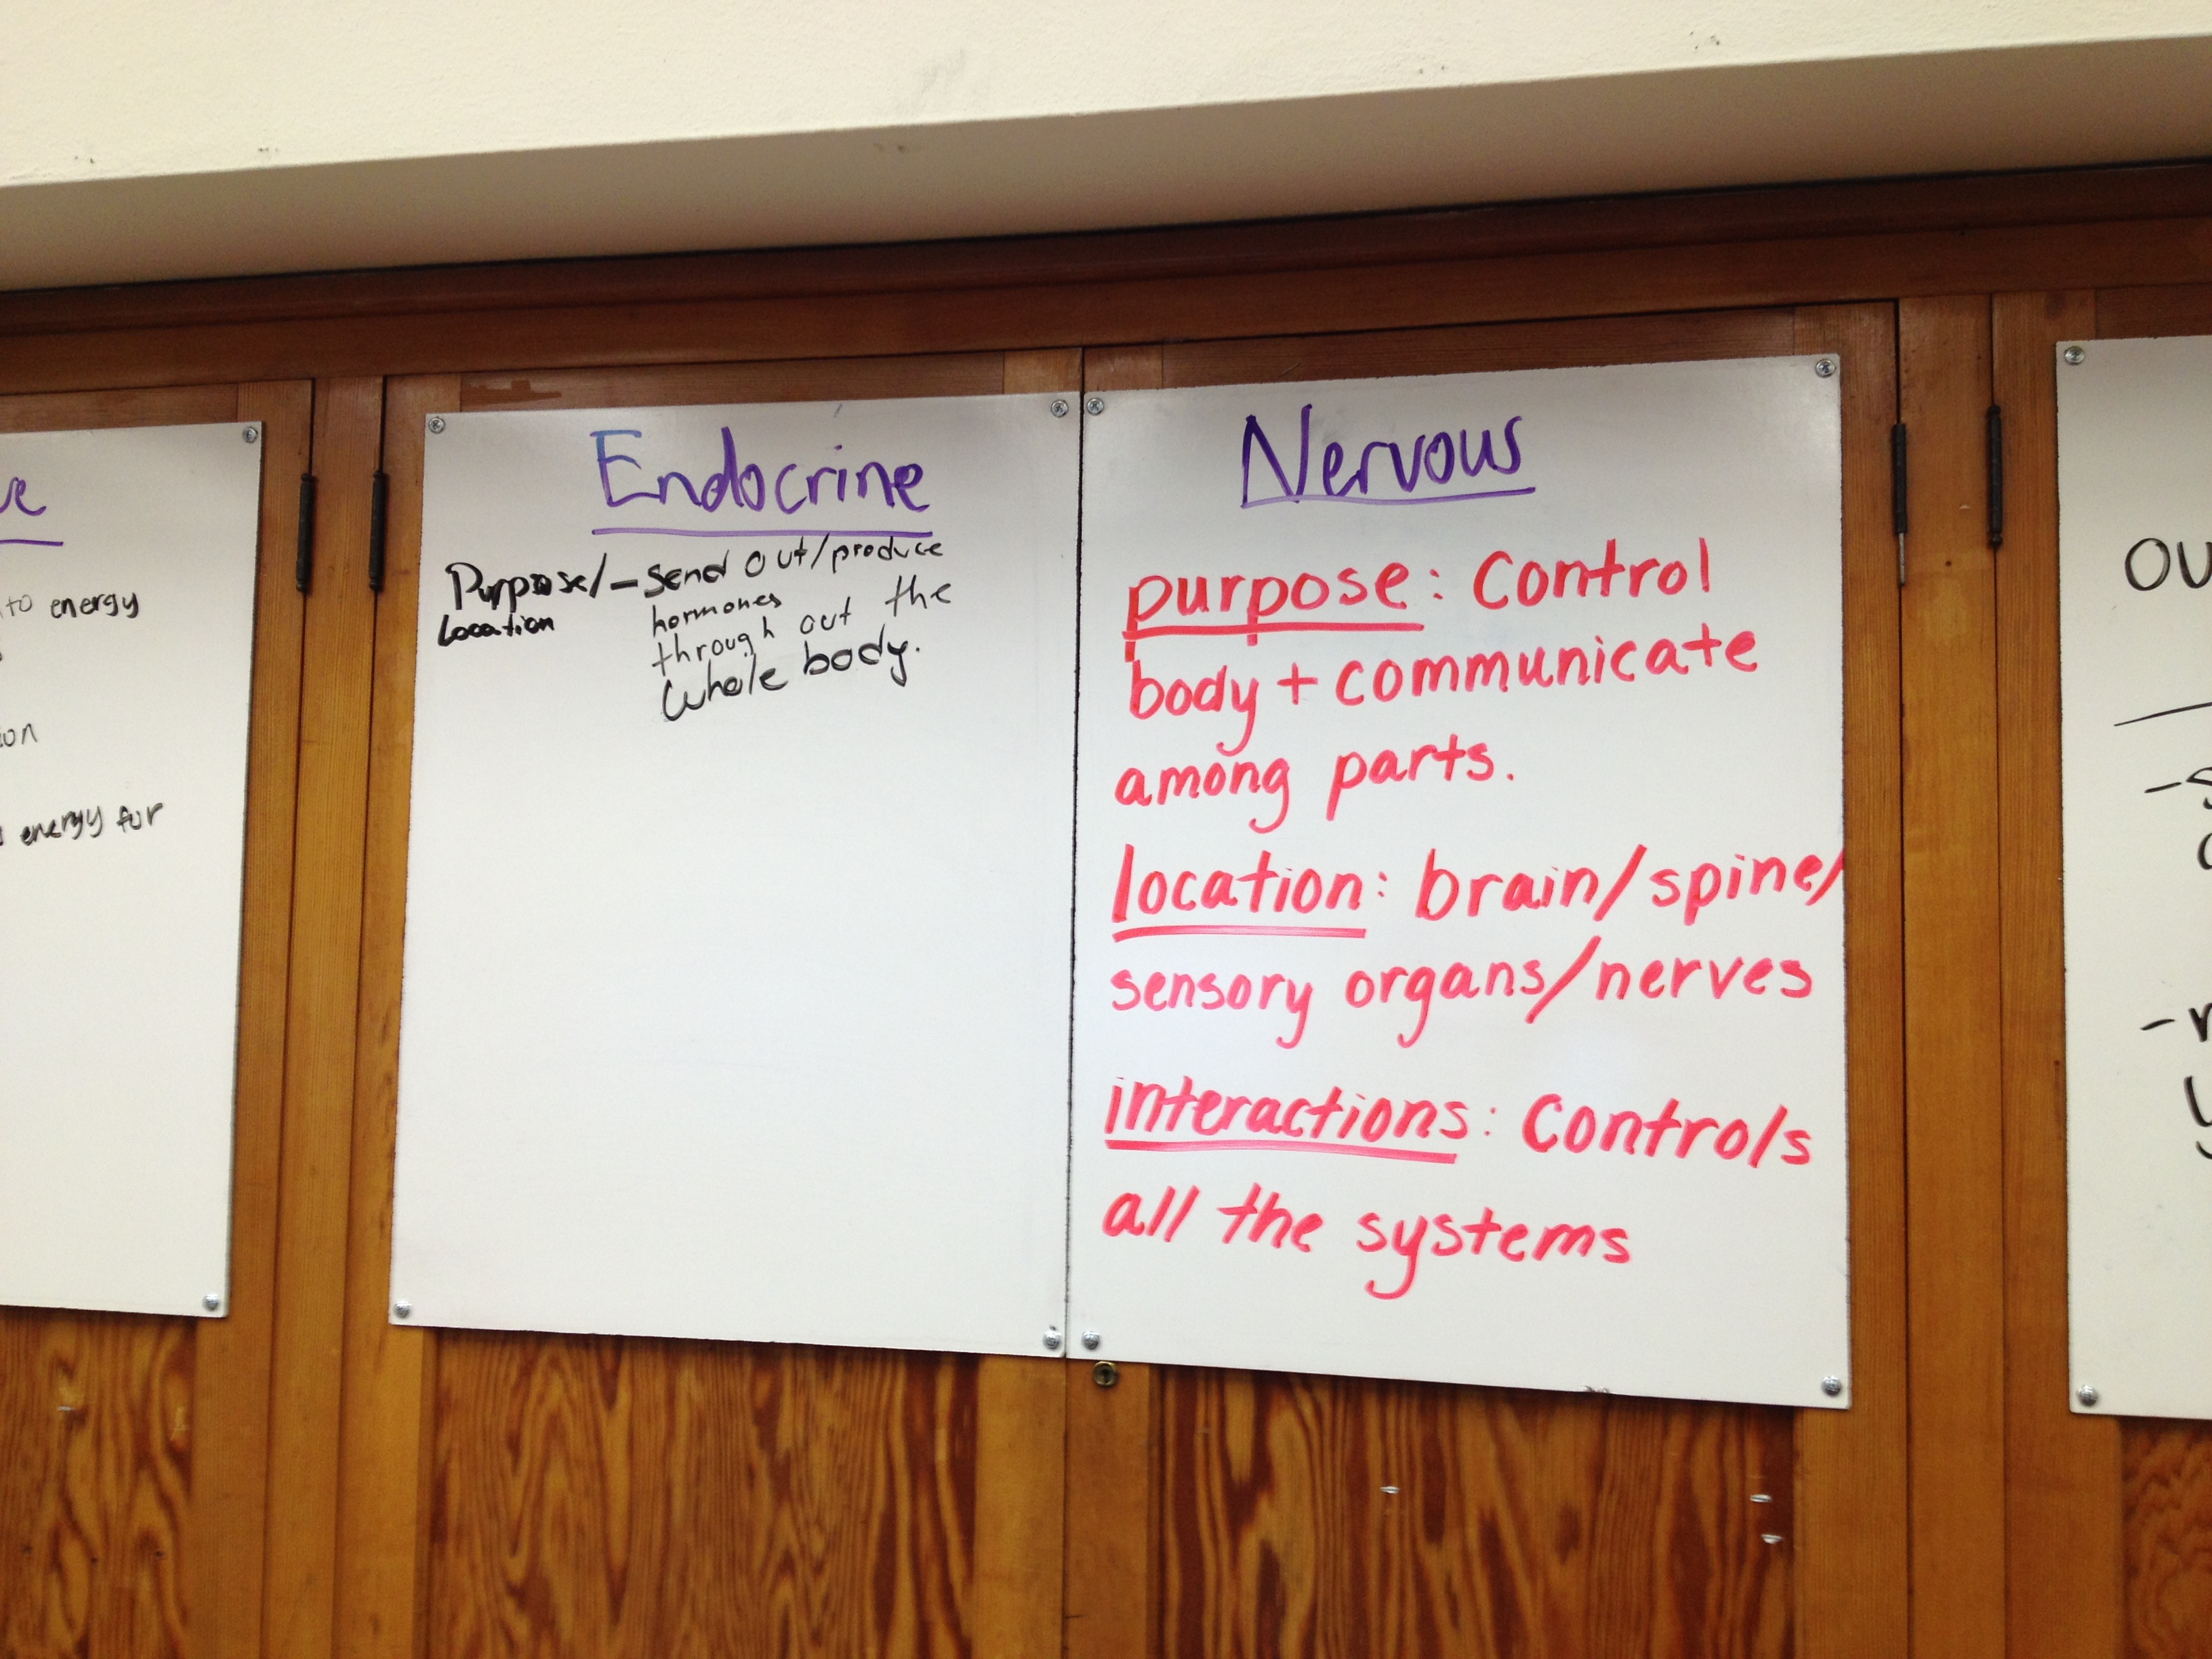 to energy
energy for
Endocrine
Purpose/ - send out/produce
Location
hormones
through out the
whole body.
Nervous
purpose: Control
body + communicate
among parts.
location: brain/spine/
sensory organs/nerves
interactions: Controls
all the systems